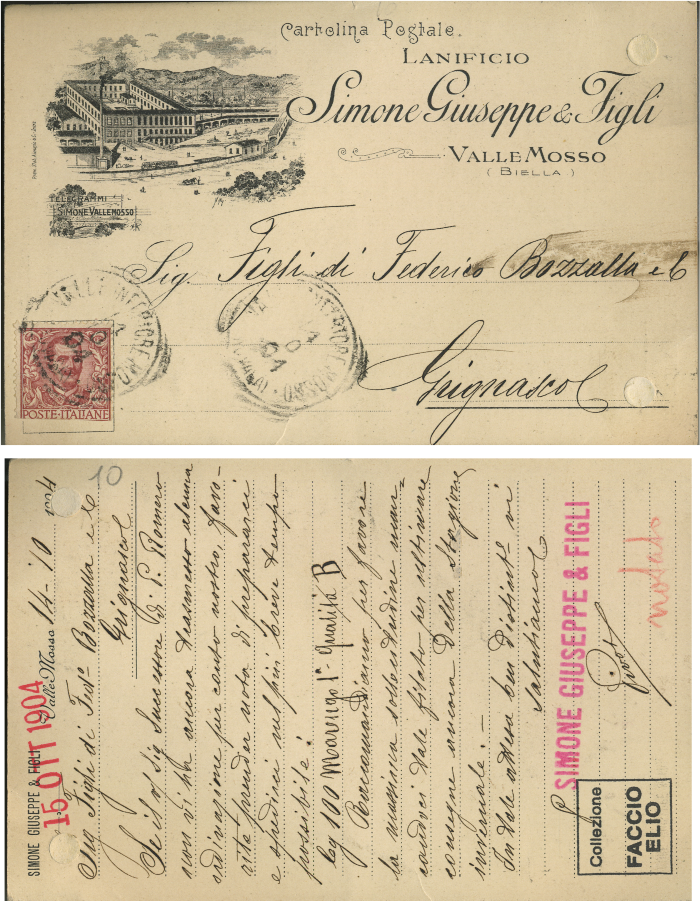 Cartolina Postale.
LANIFICIO
Simone Giuseppe & Figli
VALLE MOSSO
( BIELLA )
TELEGRAMMI
SIMONE VALLEMOSSO
Sig. Figli di Federico Bozzalla e C
Grignasco
POSTE·ITALIANE
10
SIMONE GIUSEPPE & FIGLI
15 OTT 1904
Valle Mosso 14-10 1904
Sig Figli di Fed.º Bozzalla e C
Grignasco
Se il Sig Successore di P. Romero
non vi ha ancora trasmesso alcuna
ordinazione per conto nostro, favo-
rite prender nota di prepararci
e spedirci nel più breve tempo
possibile:
Kg 100 Marengo 1ª Qualità B
Raccomandiamo per favore
la massima sollecitudine man-
candoci tale filato per ultimare
consegne ancora della stagione
invernale:-
In tale attesa ben distint. vi
salutiamo
p SIMONE GIUSEPPE & FIGLI
notato
Collezione
FACCIO
ELIO